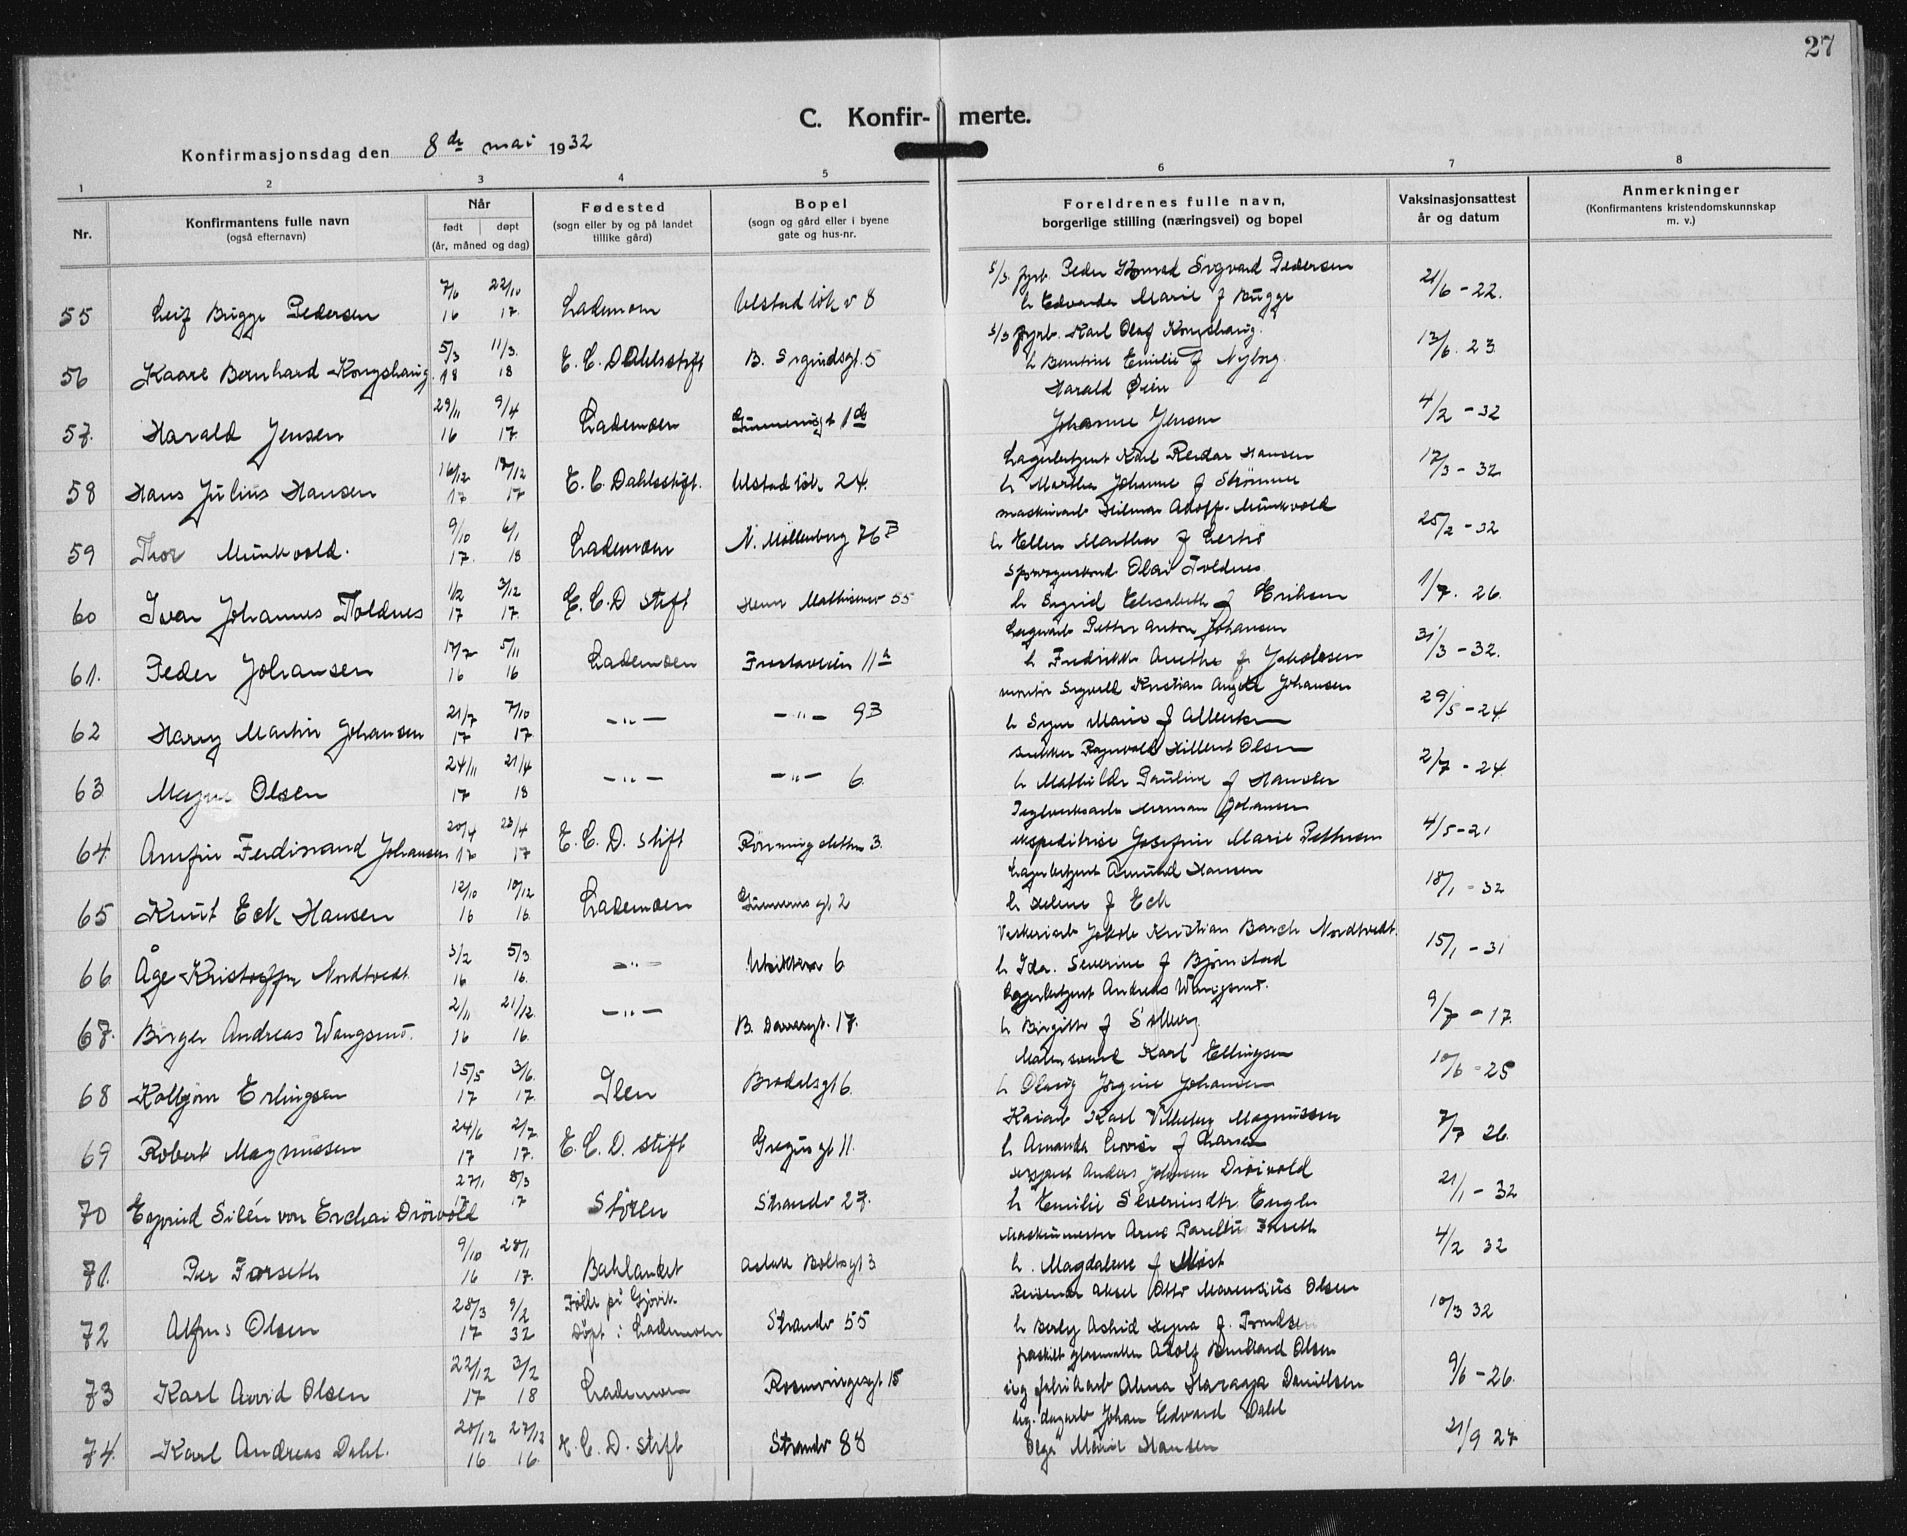 27
C. Konfir- merte.
Konfirmasjonsdag den 8de mai 1932
1 2 3 4 5 6 7 8
Nr.
Konfirmantens fulle navn
(også efternavn)
Når
født døpt
(år, måned og dag)
Fødested
(sogn eller by og på landet
tillike gård)
Bopel
(sogn og gård eller i byene
gate og hus-nr.
Foreldrenes fulle navn,
borgerlige stilling (næringsvei) og bopel
Vaksinasjonsattest
år og datum
Anmerkninger
(Konfirmantens kristendomskunnskap
m. v.)
7/6 22/10 s/s fyrb. Peder Konrad Sigvard Pedersen
55 Leif Bugge Pedersen 16 17 Lademoen Ulstadløk v 8 h Edvarda Marie f Bugge 21/6 - 22.
5/3 11/3 s/s fyrb. Karl Olaf Kongshaug.
56 Kaare Bernhard Kongshaug 18 18 E. C. Dahlsstift 5 h Berntine Emilie f Nyborg. 13/6. 23
29/11 9/4 Harald Øien
57. Harald Jensen 16 17 Lademoen Johanne Jensen 4/2 - 32
16/12 17 17 Lagerbetjent Karl Reidar Hansen
58 Hans Julius Hansen E. C. Dahlsstift. Ulstadløk 24. h Martha Johanne f 17/3 - 32
9/10 6/1 maskinarb Hilmar Adolf Munkvold
59 Thor Munkvold. 17 18 Lademoen N. Møllenberg 76 B h Ellen Martha f 25/2 - 32
1/2 3/12 Olai Foldnes
60 Ivar Johannes Foldnes 17 17. E. C. D stift Henr Mathisensv 55 h Ingrid Elisabeth f Eriksen 1/7. 26.
17/7 5/11 Petter Anton Johansen
61. Peder Johansen 16 16 Lademoen Frostaveien 11a h Fredrikke Anethe f Jakobsen 31/3 - 32.
21/7 7/10 montør Sigvald Kristian Johansen
62 Harry Martin Johansen 17 17 - " - - " - 9B h Signe Marie f 29/5 - 24
24/11 21/4 Ragnvald Hilbert Olsen
63 Magne Olsen 17 18 - " - - " - 6. h Mathilde Pauline f Hansen 2/7 - 24
20/4 23/4 Teglverksarb Herman Johansen
64. Arnfin Ferdinand Johansen 17 17 E. C. D. stift 3. ekspeditrise Josefine Marie Pettersen 4/5 - 21
12/10 10/12 Lagerbetjent Amund Hansen
65 Knut Eck Hansen 16 16. Lademoen Gunnerusgt 2 h Helene f Eck 18/1 - 32
3/2 5/3 Jakob Kristian Barch Nordtvedt.
66 Åge Kristoffer Nordtvedt. 16 16. - " - 6 h Ida. Severine f Bjørnstad 15/1 - 31
2/11 21/12. Lagerbetjent Andreas Wangsmo.
67. Birger Andreas Wangsmo. 16 16. - " - 17. h Birgitte f Solberg 9/7 - 17.
15/5 3/6. Malersvend Karl Ellingsen
68 Kolbjørn Erlingsen 17 17. Ilen 6. h Olaug Jørgine Johansen 10/6 - 25
24/6 2/7 Kaiarb Karl Magnussen
69 Robert Magnussen 17 17. E. C. D. stift Gregusgt 11. h Amanda Lovise f Larsen 7/7 26.
27/1 8/3 Anders Johansen Drøivold
70 Eyvind Silén von Erchai Drøivold 17 17 Støren Strandv 27. h Emilie Severinsdtr Engh 21/1 - 32
9/10 28/1 Maskinmester Forseth
71. Per Forseth 16 17. Bakklandet Aslak Boltsgt 3 h. Magdalene f Møst 4/2 32
28/3 9/2 Født på Gjøvik Aksel Otto Marensius Olsen
72 Alfons Olsen 17 32 Døpt i Lademoen Strandv 55 h Berly Astrid f. Trondsen 10/3 32
22/12 3/2 fraskilt Adolf Olsen
73 Karl Arvid Olsen 17 18 Lademoen Rosenvingesgt 15 fabrikarb Alma Danielsen 9/6 - 26.
20/12 27/12 dagarb Johan Edvard Dahl
74. Karl Andreas Dahl. 16 16. E. C. D. stift Strandv 88 Olga Marie Hansen 21/9 27